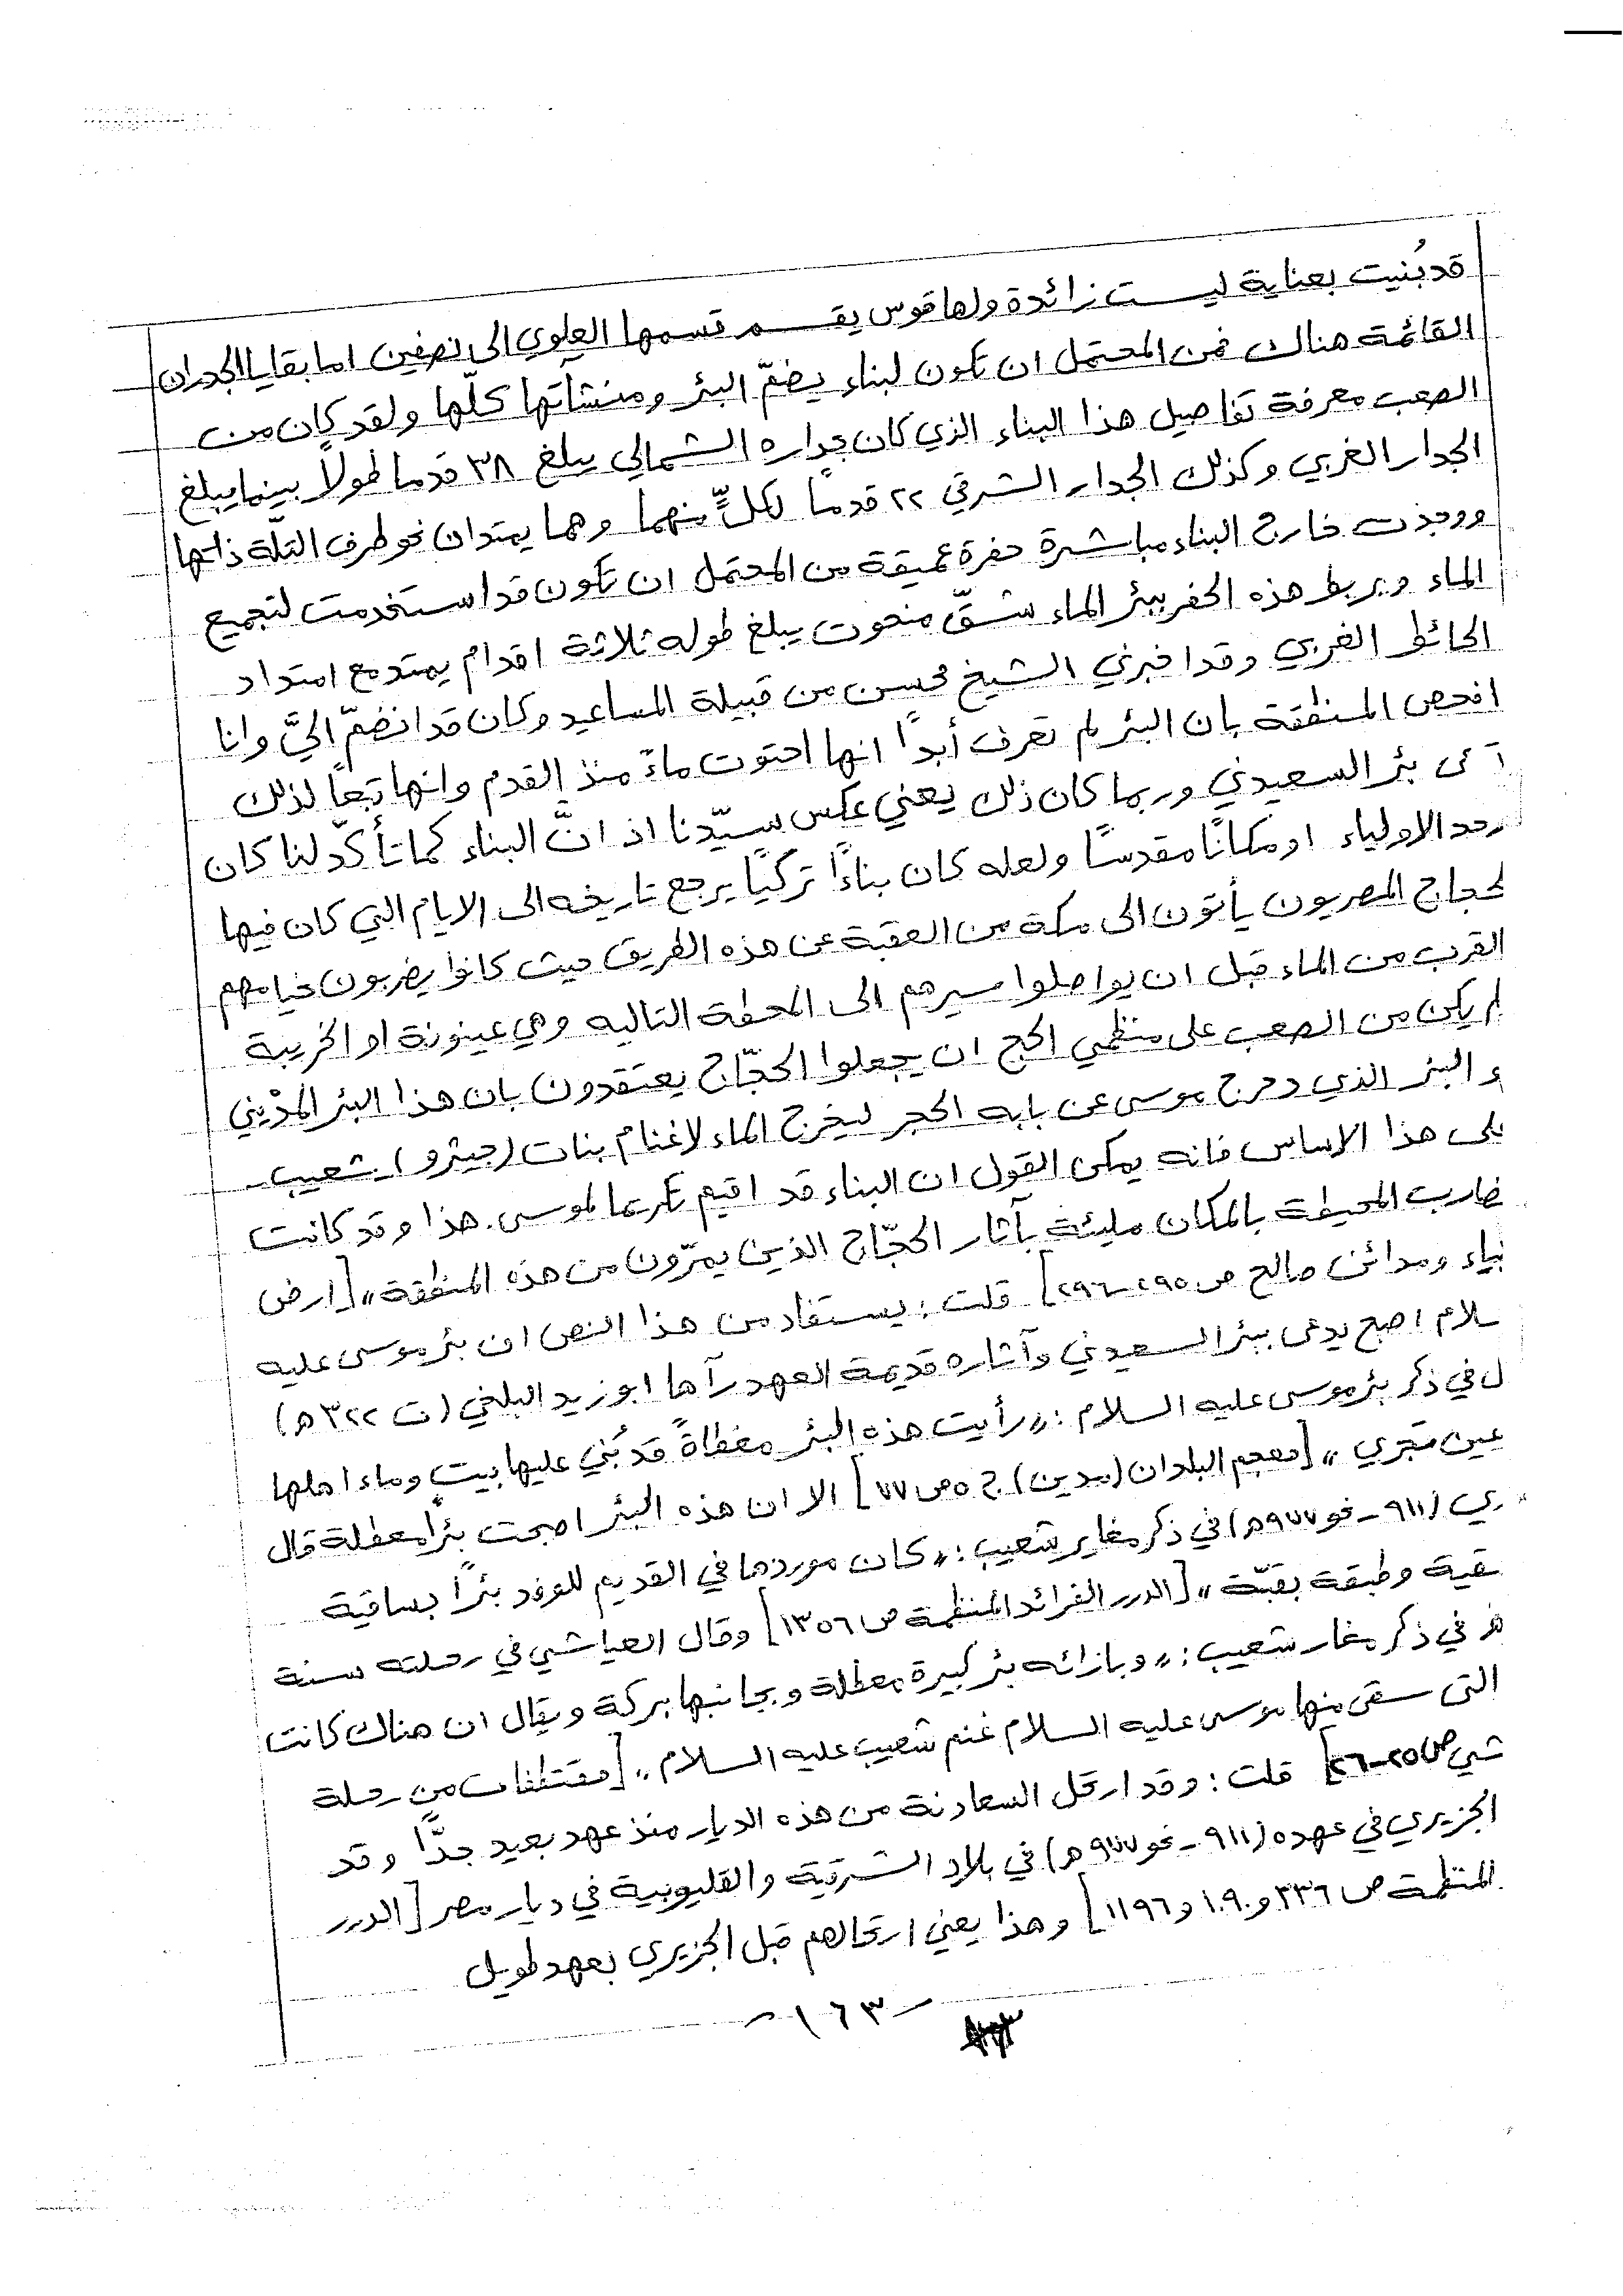 قد بُنيت بعناية ليست زائدة ولها قوس يقسم قسمها العلوي الى نصفين اما بقايا الجدران
القائمة هناك فمن المحتمل ان تكون لبناء يضمّ البئر ومنشآتها كلّها ولقد كان من
الصعب معرفة تفاصيل هذا البناء الذي كان جداره الشمالي يبلغ ٣٨ قدما طولاً بينما يبلغ
الجدار الغربي وكذلك الجدار الشرقي ٢٢ قدمًا لكلٍّ منهما وهما يمتدان نحو طرف التلّة ذاتها
ووجدت خارج البناء مباشرة حفرة عميقة من المحتمل ان تكون قد استخدمت لتجميع
الماء ويربط هذه الحفر ببئر الماء شقّ منحوت يبلغ طوله ثلاثة اقدام يمتد مع امتداد
الحائط الغربي وقد اخبرني الشيخ محسن من قبيلة المساعيد وكان قد انضمّ اليَّ وانا
افحص المنطقة بان البئر لم تعرف أبدًا انها احتوت ماءً منذ القدم وانها تبعًا لذلك
بئر السعيدني وربما كان ذلك يعني عكس سيّدنا اذ انَّ البناء كما تأكّد لنا كان
الاولياء او مكانًا مقدسًا ولعله كان بناءًا تركيًا يرجع تاريخه الى الايام التي كان فيها
لحجاج المصريون يأتون الى مكة من العقبة عن هذه الطريق حيث كانوا يضربون خيامهم
القرب من الماء قبل ان يواصلوا سيرهم الى المحطة التاليه وهي عينونة او الخريبة
لم يكن من الصعب على منظمي الحج ان يجعلوا الحجّاج يعتقدون بان هذا البئر المدْيني
و البئر الذي دحرج موسى عن بابه الحجر ليخرج الماء لاغنام بنات (جيثرو) شعيب
لى هذا الاساس فانه يمكن القول ان البناء قد اقيم تكريما لموسى. هذا وقد كانت
ضارب المحيطة بالمكان مليئة بآثار الحجّاج الذين يمرّون من هذه المنطقة» [ارض
نبياء ومدائن صالح ص ٢٩٥-٢٩٦] قلت: يستفاد من هذا النص ان بئر موسى عليه
سلام اصبح يدعى ببئر السعيدني وآثاره قديمة العهد رآها ابو زيد البلخي (ت ٣٢٢ ه)
ل في ذكر بئر موسى عليه السلام: «رأيت هذه البئر مغطاةً قد بُني عليها بيت وماء اهلها
عين تجري» [معجم البلدان (مدين) ج ٥ ص ٧٧] الا ان هذه البئر اصبحت بئرًا معطلة قال
ري (٩١١ - نحو ٩٧٧ ه) في ذكر مغاير شعيب: «كان موردها في القديم للوفد بئرًا بساقية
سقية وطبقة بقبّة» [الدرر الفرائد المنظمة ص ١٣٥٦] وقال العياشي في رحلته سنة
ه في ذكر مغار شعيب: «وبازائه بئر كبيرة معطلة وبجانبها بركة ويقال ان هناك كانت
التى سقى منها موسى عليه السلام غنم شعيب عليه السلام» [مقتطفات من رحلة
شي ص ٢٥-٢٦] قلت: وقد ارتحل السعادنة من هذه الديار منذ عهد بعيد جدًّا وقد
الجزيري في عهده (٩١١ - نحو ٩٧٧ ه) في بلاد الشرقية والقليوبية في ديار مصر [الدرر
المنظمة ص ٣٣٦ و ١٠٩٠ و ١١٩٦] وهذا يعني ارتحالهم قبل الجزيري بعهد طويل
- ١٦٣ -